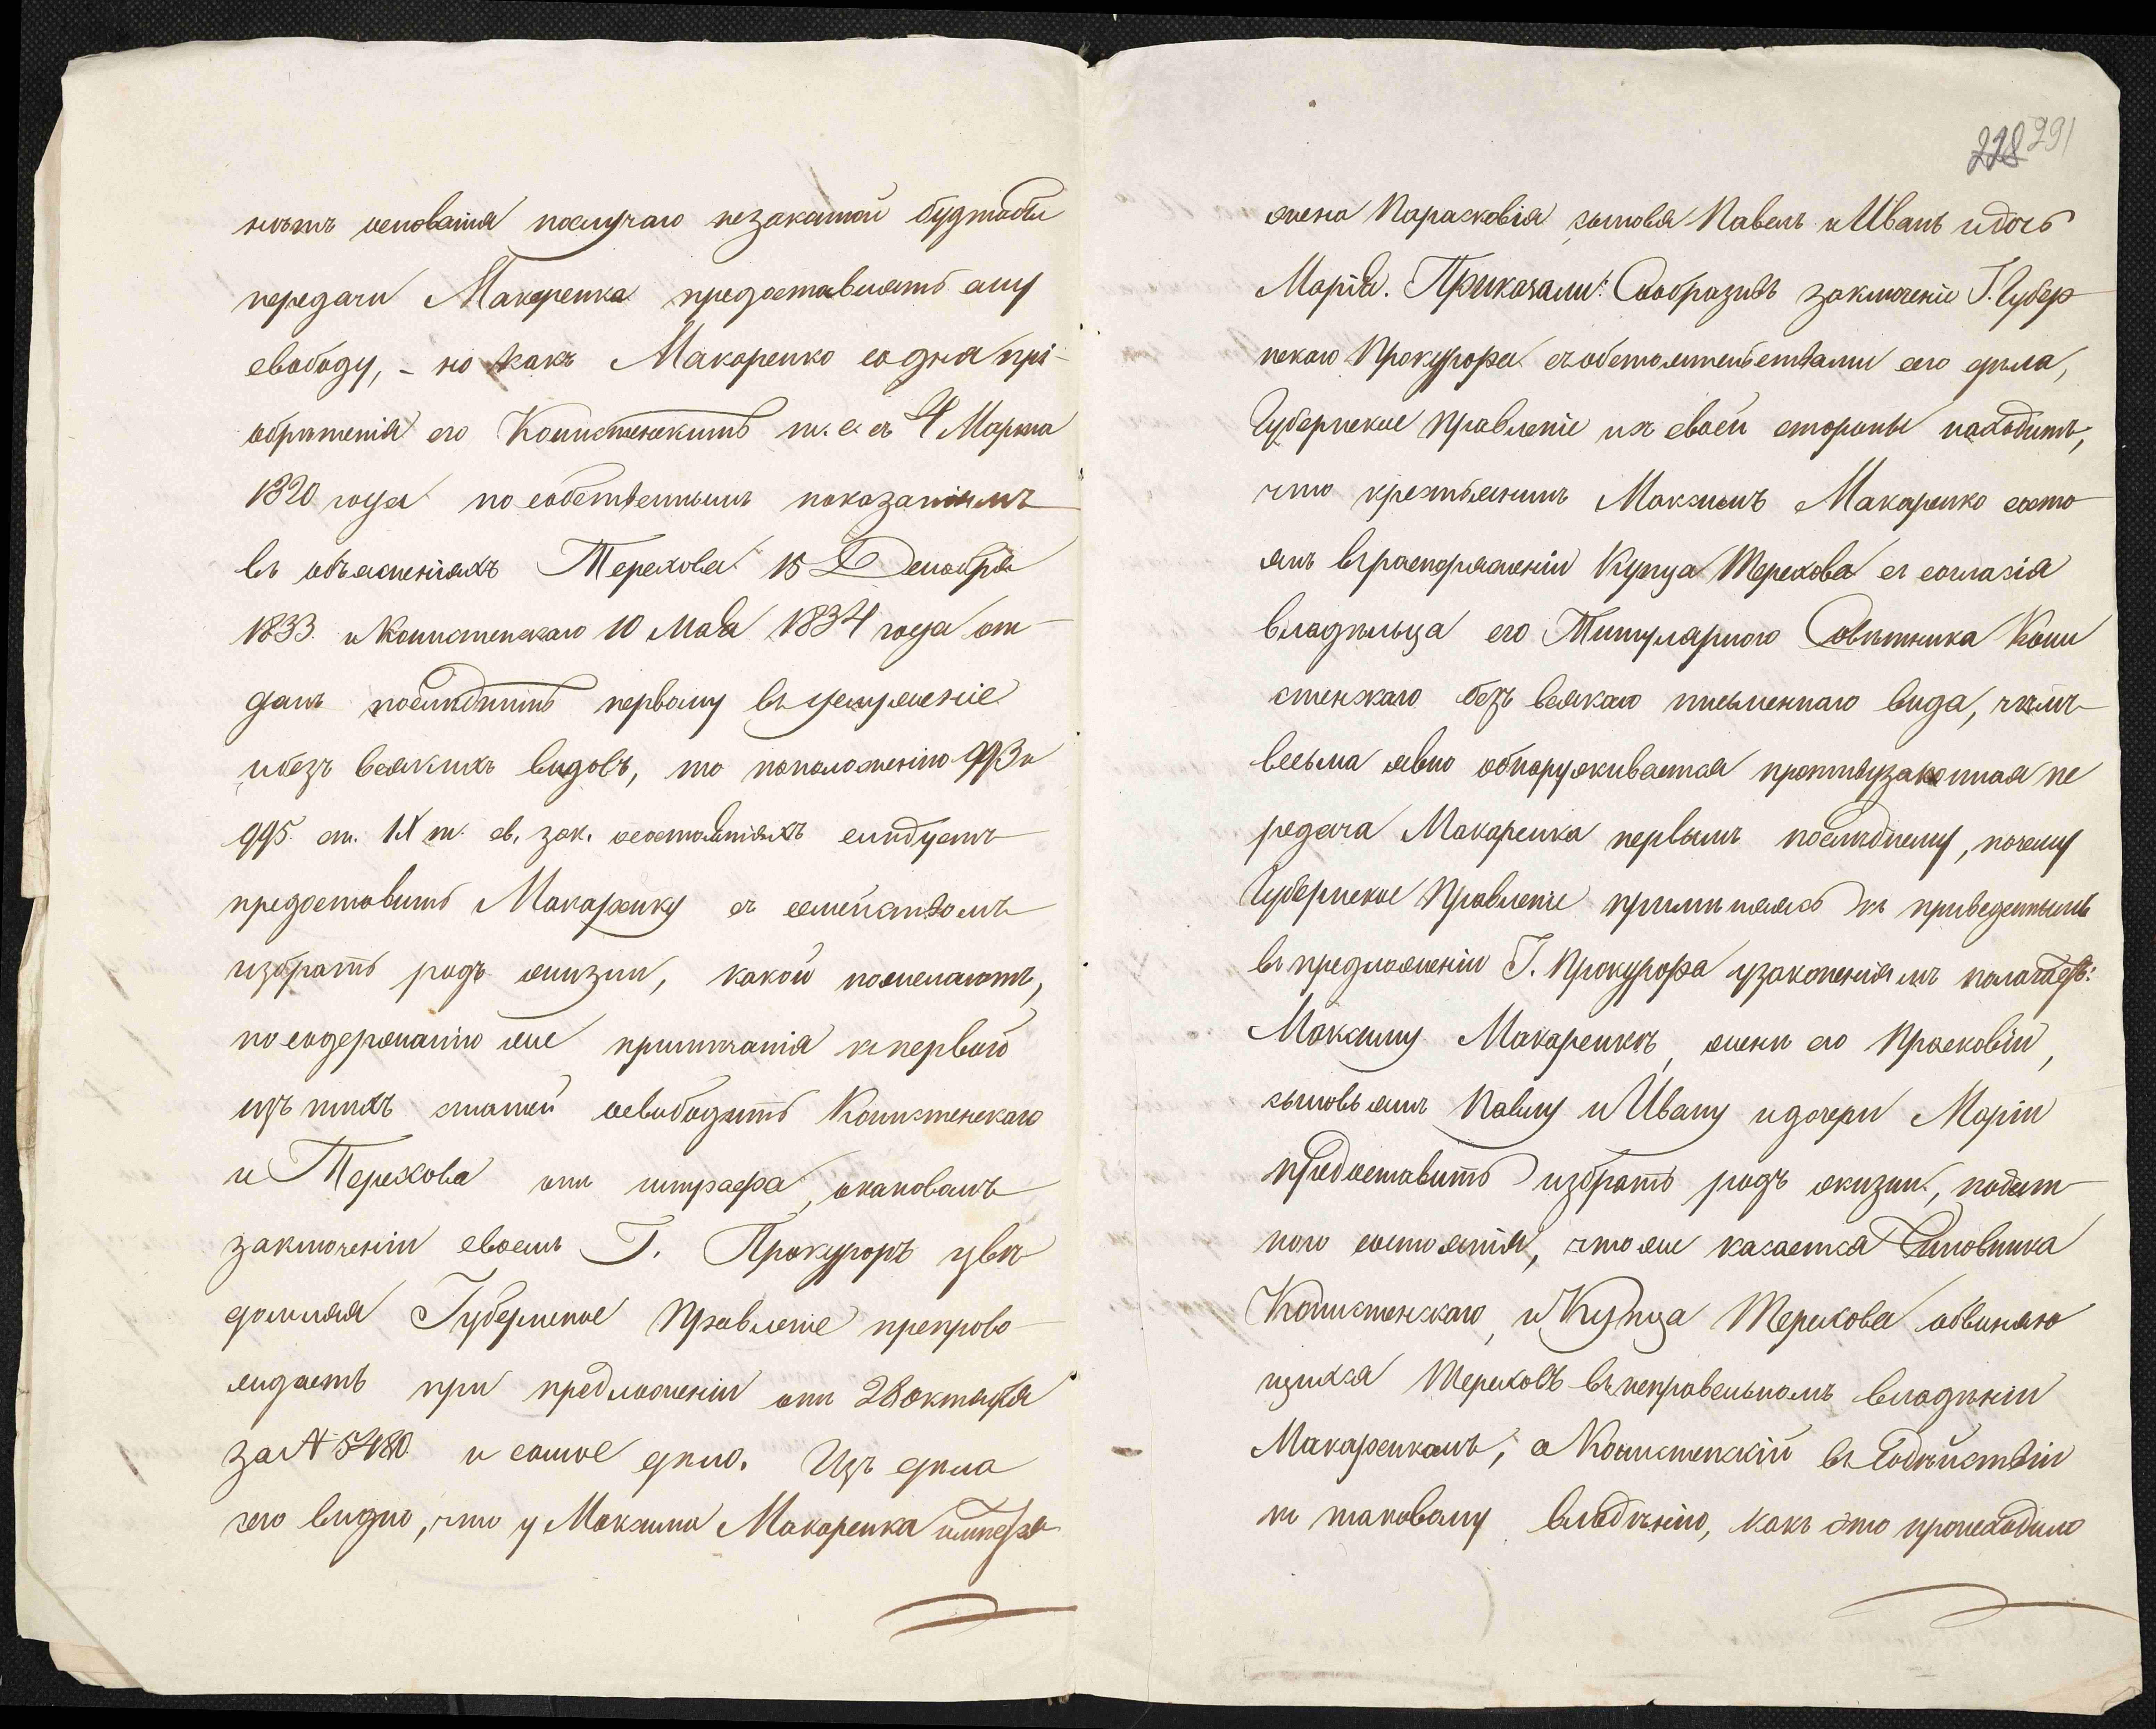 нѣтъ основанія послучаю незаконной будтобы
передачи Макаренка предоставлять ему
свободу, – но какъ Макаренко со дня прі-
обрѣтенія его Коптстенскимъ т. е. съ 4 Марта
1820 года по собственнымъ показаніямъ
въ объясненіяхъ Терехова 15 Декабря
1833. и Коптстенскаго 10 Мая 1834 года от
данъ послѣднимъ первому въ услуженіе
ибезъ всякихъ видовъ, то поположенію 993 и
995. ст. IX т. св. зак. осостояніяхъ слѣдуетъ
предоставить Макаренку съ семействомъ
избрать родъ жизни, какой пожелаютъ,
посодержанію же примѣчанія кпервой
изъ тѣхъ статей освободить Коптстенскаго
и Терехова отъ штрафа, окаковомъ
заключеніи своемъ Г. Прокуроръ увѣ
домляя Губернское Правленіе препрово
ждаетъ при предложеніи отъ 28 октября
за № 5480. и самое дѣло. Изъ дѣла
сего видно, что у Максима Макаренка
228 291
жена Парасковія сыновья Павелъ и Иванъ идочь
Марія. Приказали: Сообразивъ заключеніе Г. Губер
нскаго Прокурора собстоятельствами сего дѣла,
Губернское Правленіе изъ своей стороны находитъ,
что крестьянинъ Максимъ Макаренко состо
ялъ враспоряженіи Купца Терехова съ согласія
владѣльца его Титулярнаго Совѣтника Копт
стенскаго безъ всякаго письменнаго вида, чѣмъ
весьма явно обнаруживается противузаконная пе
редача Макаренка первымъ послѣднему, почему
Губернское Правленіе примѣняясь къ приведеннымъ
въ предложеніи Г. Прокурора узаконеніямъ
Максиму Макаренкѣ, женѣ его Прасковіи,
сыновьямъ Павлу и Ивану идочери Маріи
предоставить избрать родъ жизни, подат
ного состоянія, чтоже касается Чиновника
Коптстенскаго, и Купца Терехова обвиняю
щихся Тереховъ въ неправельномъ владѣніи
Макаренкомъ, а Коптстенскій въ Содѣйствіи
къ таковому владѣнію, какъ это происходило